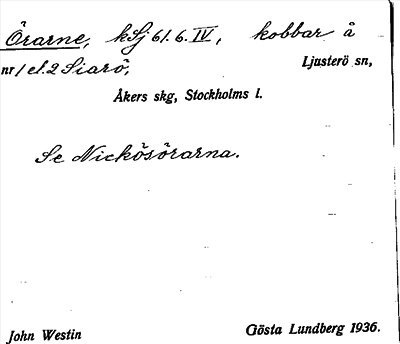 Örarne, kSj 61.6.IV, kobbar å
nr 1 el. 2 Siarö, Ljusterö sn,
Åkers skg, Stockholms l.
Se Nickösörarna.
John Westin Gösta Lundberg 1936.